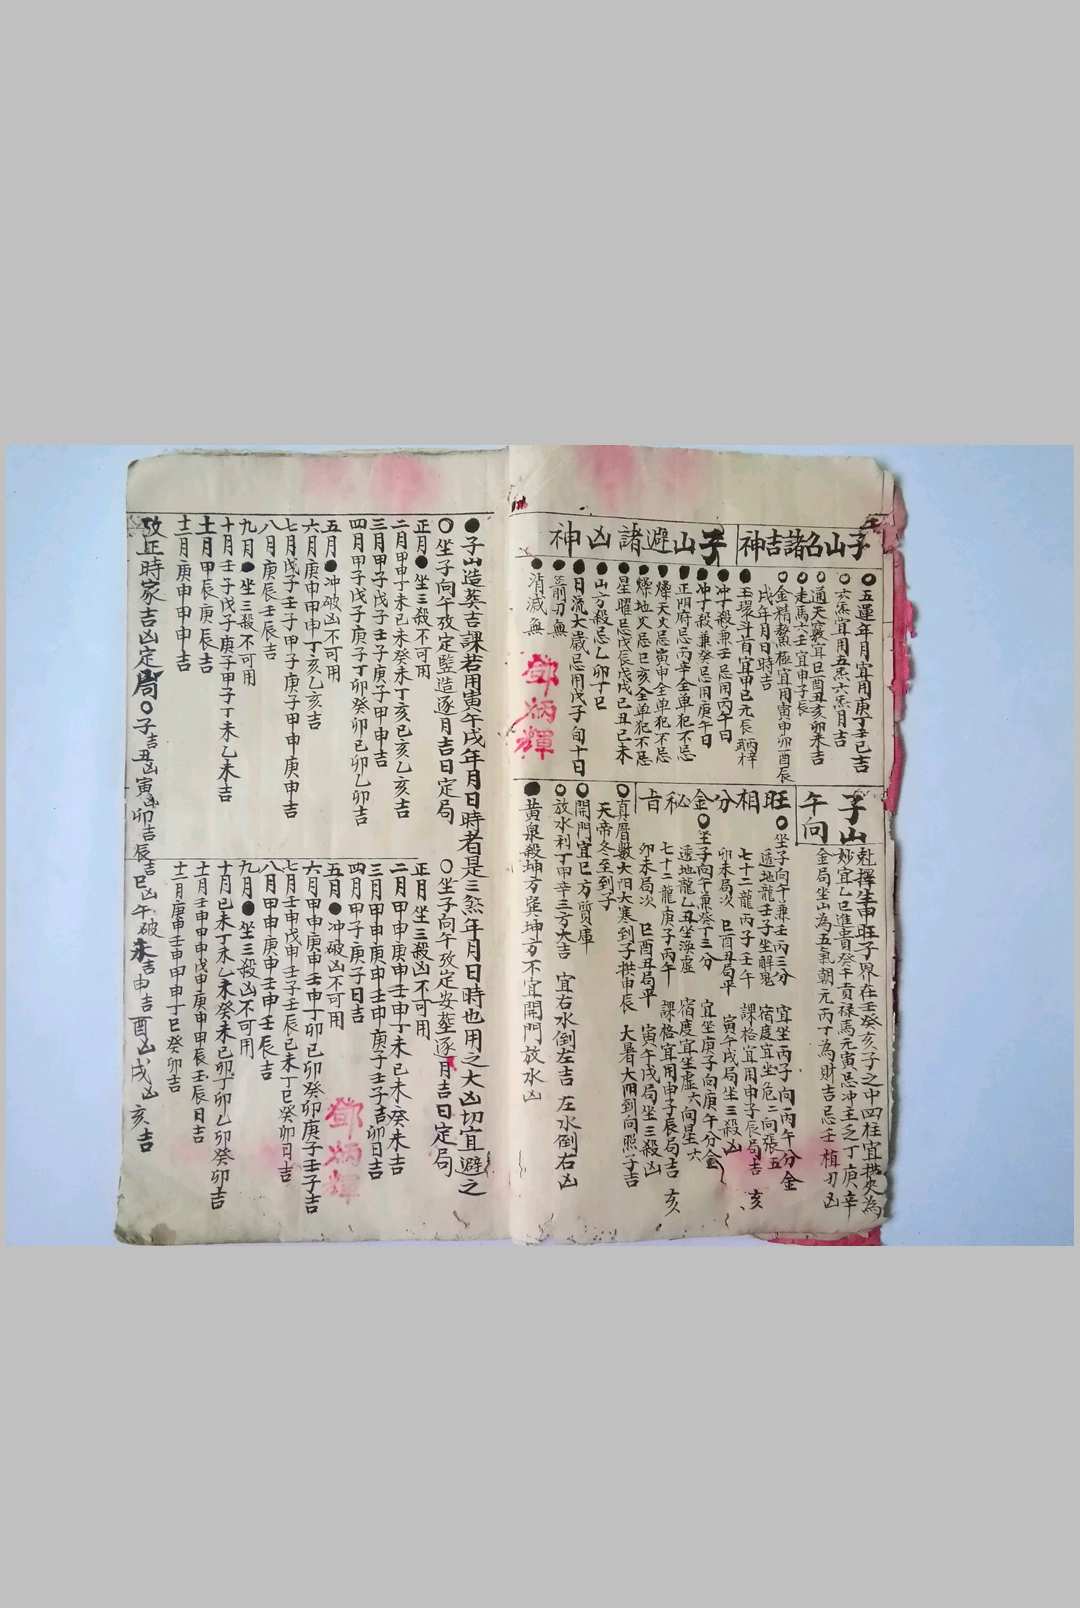 子山名諸吉神
五運年月宜用庚丁壬己吉
六炁宜用五炁六炁月吉
通天竅宜巳酉丑亥卯未吉
走馬六壬宜申子辰
金精鰲極宜用寅申卯酉辰
戌年月日時吉
玉環斗首宜甲己元辰
子山避諸凶神
冲丁殺兼壬忌用丙午日
冲丁殺兼癸忌用庚午日
正阴府忌丙辛全单犯不忌
燥天火忌寅申全单犯不忌
燥地火忌巳亥全单犯不忌
星曜忌戊辰戊戌己丑己未
山方殺忌乙卯丁巳
日流大歲忌用戊子旬十日
箭刃無
消減無
鄧炳輝
子山
午向
生申旺子界在壬癸亥子之中四柱宜拱夹為
妙宜乙巳進貴癸干貢祿馬元寅忌冲主乏丁庚辛
金局坐山為五氣朝元丙丁為財吉忌壬植刃凶
旺相分金秘旨
坐子向午兼壬丙三分 宜坐丙子向丙午分金
透地龍壬子坐解鬼 宿度宜坐危二向張五
七十二龍丙子壬午 課格宜用申子辰局吉 亥
卯未局次 巳酉丑局平 寅午戌局坐三殺凶
坐子向午兼癸丁三分 宜坐庚子向庚午分金
透地龍乙丑坐渙虛 宿度宜坐虛六向星六
七十二龍庚子丙午 課格宜用申子辰局吉 亥
卯未局次 巳酉丑局平 寅午戌局坐三殺凶
真曆數大阳大寒到子拱申辰 大暑大阳到向照子吉
天帝冬至到子
開門宜巳方貿庫
放水利丁甲辛三方大吉 宜右水倒左吉 左水倒右凶
黃泉殺坤方巽坤方不宜開門放水凶
子山造葵吉課若用寅午戌年月日時者是三煞年月日時也用之大凶切宜避之
坐子向午攷定監造逐月吉日定局
正月 坐三殺不可用
二月甲申丁未己未癸未丁亥己亥乙亥吉
三月甲子戊子壬子庚子甲申吉
四月甲子戊子庚子丁卯癸卯己卯乙卯吉
五月 冲破凶不可用
六月庚申甲申丁亥乙亥吉
七月戊子壬子甲子庚子甲申庚申吉
八月庚辰壬辰吉
九月 坐三殺不可用
十月壬子戊子庚子甲子丁未乙未吉
十一月甲辰庚辰吉
十二月庚申甲申吉
坐子向午攷定安塟逐月吉日定局
正月坐三殺凶不可用
二月甲申庚申壬申丁未己未癸未吉
三月甲申庚申壬申庚子壬子吉卯日吉
四月甲子庚子日吉
五月 冲破凶不可用
六月甲申庚申壬申丁卯己卯癸卯庚子壬子吉
七月壬申戊申壬子壬辰己未丁巳癸卯日吉
八月甲申庚申壬申壬辰吉
九月 坐三殺凶不可用
十月己未丁未乙未癸未己卯丁卯乙卯癸卯吉
十一月壬申甲申戊申庚申甲辰壬辰日吉
十二月庚申壬申甲申丁巳癸卯吉
鄧炳輝
攷正時家吉凶定局 子吉丑凶寅凶卯吉辰吉巳凶午破未吉申吉酉凶戌凶亥吉